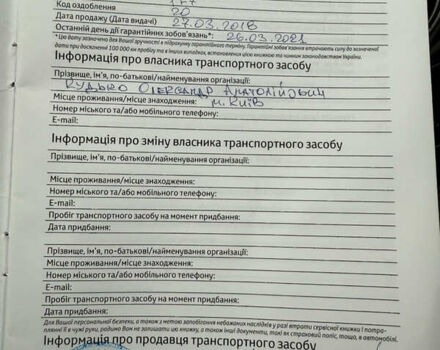 Код оздоблення 20
Дата продажу (Дата видачі) 27.03.2018
Останній день дії гарантійних зобов'язань*: 26.03.2021
*Цю дату зазначено для Вашої зручності в підрахунку гарантійного терміну. Гарантійні зобов'язання втрачають силу до зазначеної
дати при досягненні 100 000 км пробігу та в інших випадках, встановлених цією книжкою та чинним законодавством України.
Інформація про власника транспортного засобу
Прізвище, ім'я, по-батькові/найменування організації:
Рудько Олександр Анатолійович
Місце проживання/місце знаходження: м. Київ
Номер міського та/або мобільного телефону:
E-mail:
Інформація про зміну власника транспортного засобу
Прізвище, ім'я, по-батькові/найменування організації:
Місце проживання/місце знаходження:
Номер міського та/або мобільного телефону:
E-mail:
Пробіг транспортного засобу на момент придбання:
Дата придбання:
Прізвище, ім'я, по-батькові/найменування організації:
Місце проживання/місце знаходження:
Номер міського та/або мобільного телефону:
E-mail:
Пробіг транспортного засобу на момент придбання:
Дата придбання:
Для Вашої персональної безпеки, а також з метою запобігання небажаних наслідків у разі втрати сервісної книжки і потра-
плянні її в чужі руки, радимо Вам не залишати цю книжку, а також інші документи, такі як страховий поліс, тощо, в автомобілі.
Інформація про продавця транспортного засобу